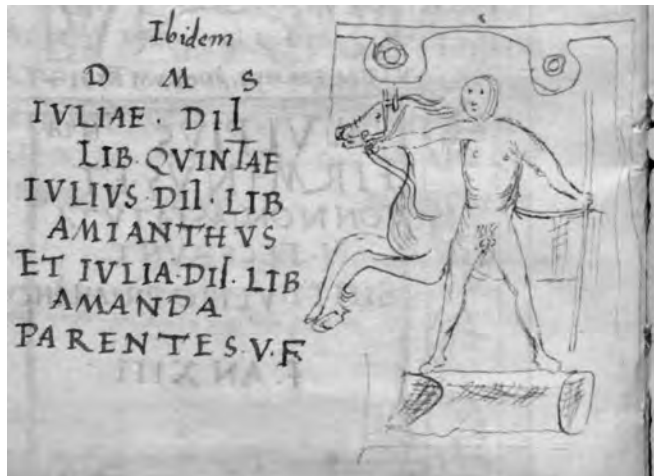 Ibidem
D M S
IVLIAE · DIl
LIB · QVINTAE
IVLIVS · DIl · LIB
AMIANTHVS
ET IVLIA · DIl · LIB
AMANDA
PARENTES · V · F